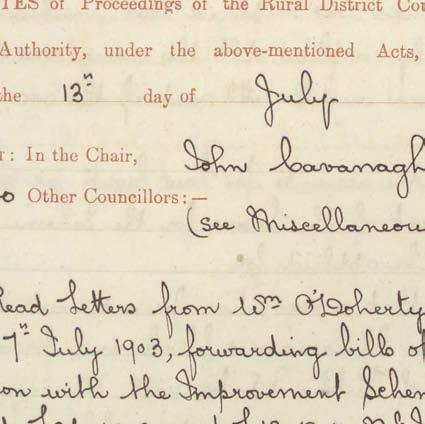 TES of Proceedings of the Rural District Cou
Authority, under the above-mentioned Acts,
the 13th day of July
r: In the Chair, John Cavanagh
Other Councillors:—
(see Miscellaneou
Read Letters from Wm O'Doherty
7th July 1903, forwarding bills of
on with the Improvement Schem